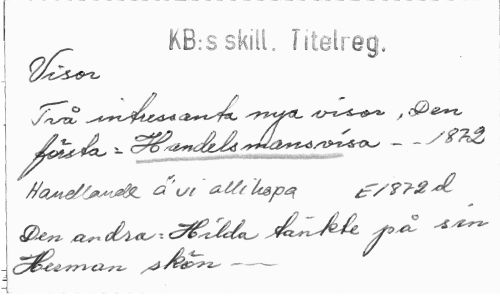 KB:s skill. Titelreg.
Visor
Två intressanta nya visor, Den
första = Handelsmansvisa - - 1872
Handlande ä vi allihopa E1872d
Den andra = Hilda tänkte på sin
Herman skön —